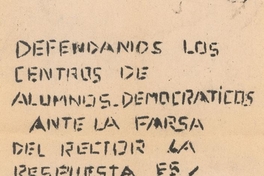 DEFENDAMOS LOS
CENTROS DE
ALUMNOS-DEMOCRATICOS
ANTE LA FARSA
DEL RECTOR LA
RESPUESTA ES/